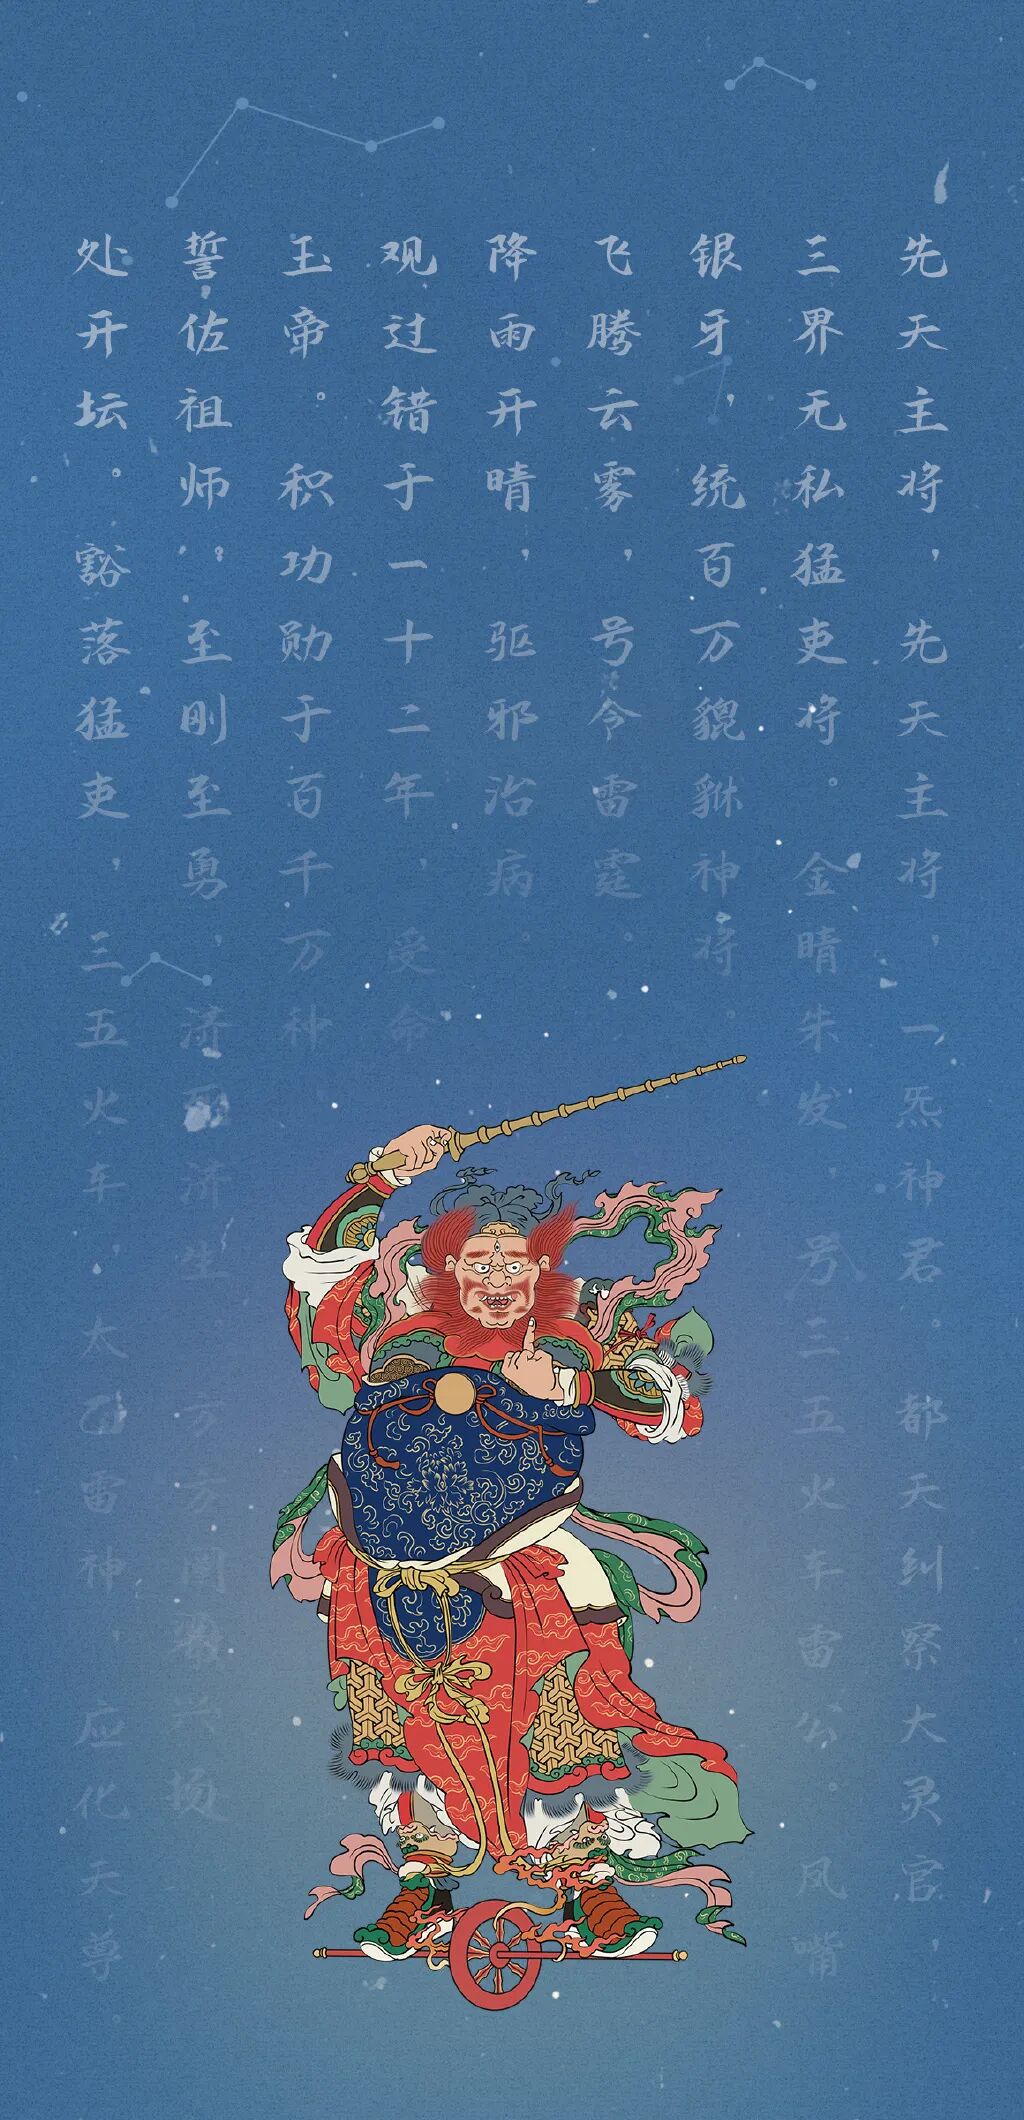 先天主将，先天主将，一炁神君。都天纠察大灵官，
三界无私猛吏将。金晴朱发，号三五火车雷公。风嘴
银牙，统百万貔貅神将。
飞腾云雾，号令雷霆。
降雨开晴，驱邪治病。
观过错于一十二年，受命
玉帝。积功勋于百千万种
誓佐祖师。至刚至勇，济死济生 方 扬
处开坛。豁落猛吏，三五火车，太 雷神，应化天尊